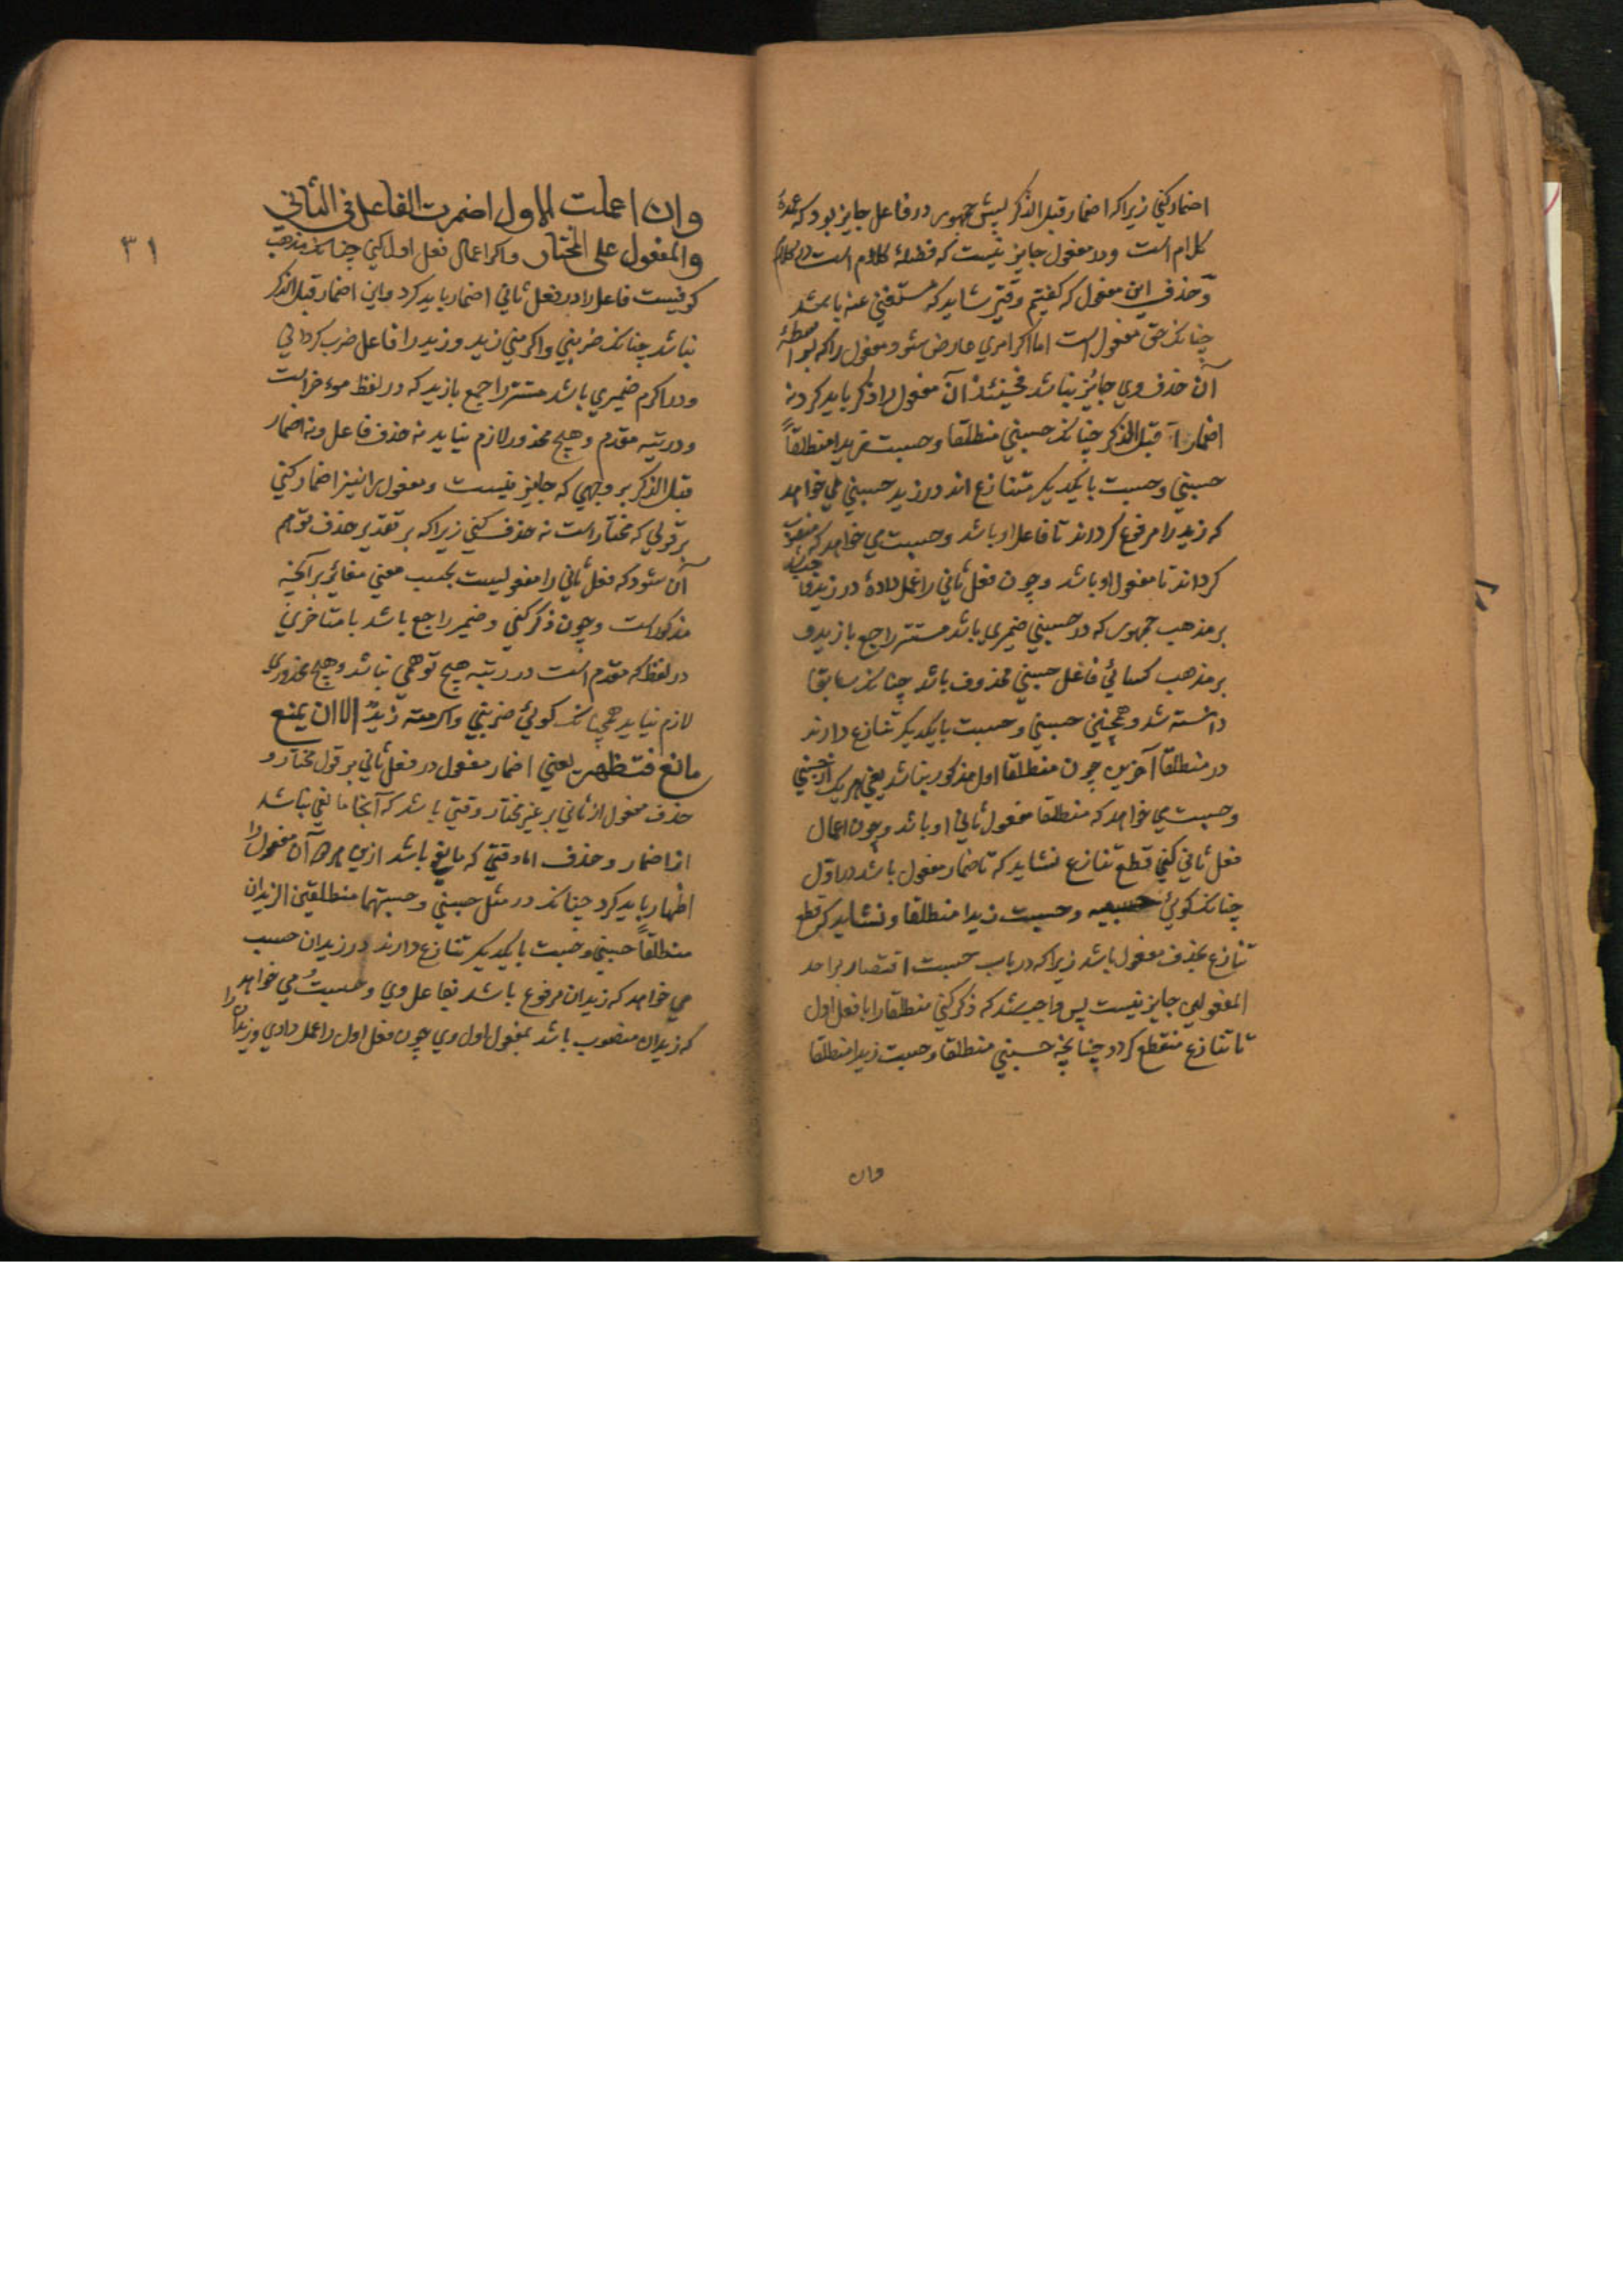 اضمار کني زیراکه اضمار قبل الذکر پیش جمهور در فاعل جایز بود که عمدۀ
کلام است ودر مفعول جایز نیست که فضلۀ کلام است در کلام
وحذف این مفعول که گفتیم وقتی شاید که مستغني عنه باشد
چنانکه حق مفعول است اما اکر امري عارض شود مفعول را که بواسطۀ
آن حذف وي جائز نباشد فحینئذ آن مفعول را ذکر باید کرد نه
اضمار قبل الذکر چنانکه حسبني منطلقا وحسبت زیدا منطلقاً
حسبني وحسبت بایکدیکر متنازع اند در زید حسبني مي خواهد
که زید را مرفوع کرداند تا فاعل او باشد وحسبت مي خواهد که منصوب
کرداند تا مفعول او باشد وچون فعل ثاني را عمل دادۀ در زید
بر مذهب جمهور که در حسبني ضمیري باشد مستتر راجع بازید و
بر مذهب کسائي فاعل حسبني محذوف باشد چنانکه سابقا
دانسته شد وهمچنین حسبني وحسبت بایکدیکر تنازع دارند
در منطلقا آخرین چون منطلقا اول مذکور نباشد یعني هر یک از حسبني
وحسبت مي خواهد که منطلقا مفعول ثاني او باشد وچون اعمال
فعل ثاني کني قطع تنازع نشاید که تا ضمار مفعول باشد در اول
چنانکه کوئي وحسبت زیدا منطلقا ونشاید که قطع
تنازع بحذف مفعول باشد زیراکه در باب حسبت اقتصار بر احد
المفعولین جایز نیست پس واجب شد که ذکر کني منطلقا را با فعل اول
تا تنازع منقطع کردد چنانچه حسبني منطلقا وحسبت زیدا منطلقا
وان
٣١
وان اعملت الاول اضمرت الفاعل في الثاني
والمفعول علی المختار واکر اعمال فعل اول کني چنانکه مذهب
کوفیست فاعل را در فعل ثاني اضمار باید کرد واین اضمار قبل الذکر
نباشد چنانکه ضربني واکرمني زید وزید را فاعل ضرب کرداني
ودر اکرم ضمیري باشد مستتر راجع بازید که در لفظ موءخر است
ودر رتبه مقدم وهیچ محذور لازم نیاید نه حذف فاعل ونه اضمار
قبل الذکر بر وجهي که جایز نیست ومفعول را نیز اضمار کني
بر قولي که مختار است نه حذف کني زیراکه بر تقدیر حذف توهم
آن شود که فعل ثاني را مفعولیست بحسب معني مغائر برآنچه
مذکور است وچون ذکر کني وضمیر راجع باشد با متاخري
در لفظ که مقدم است در رتبه هیچ توهمي نباشد وهیچ محذوري
لازم نیاید همچنانکه کوئي ضربني واکرمته زیدٌ الا ان یمنع
مانع فتظهر یعني اضمار مفعول در فعل ثاني بر قول مختار و
حذف مفعول از ثاني بر غیر مختار وقتي باشد که آنجا مانعي نباشد
از اضمار وحذف اما وقتي که مانع باشد ازین هر دو آن مفعول را
اظهار باید کرد چنانکه در مثل حسبني وحسبتهما منطلقین الزیدان
منطلقاً حسبني وحسبت بایکدیکر تنازع دارند در زیدان حسب
مي خواهد که زیدان مرفوع باشد بفاعل وي وحسبتُ مي خواهد
که زیدان منصوب باشد بمفعول اول وي چون فعل اول را عمل دادي وزیدان را